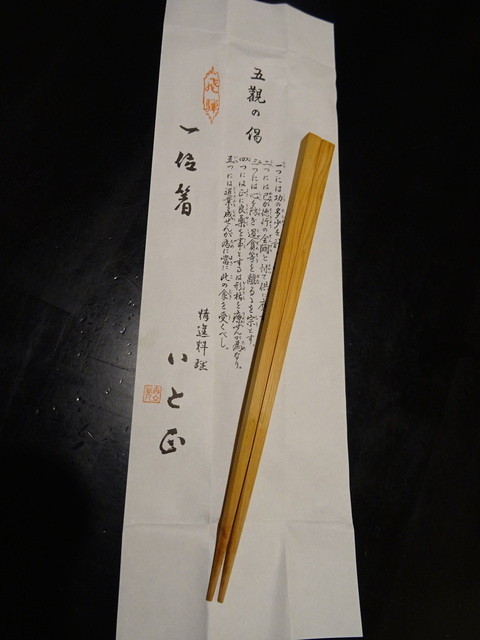 五觀の偈
一つには功の多少を計
二つには己が德行の全闕と忖
三つには心を防ぎ過貪等を離るゝを宗とす。
四つには正に良藥を事とするは形枯を療ぜんが爲なり。
五つには道業を成ぜんが爲に當に此の食を受くべし。
飛騨
一位箸
精進料理
いと正